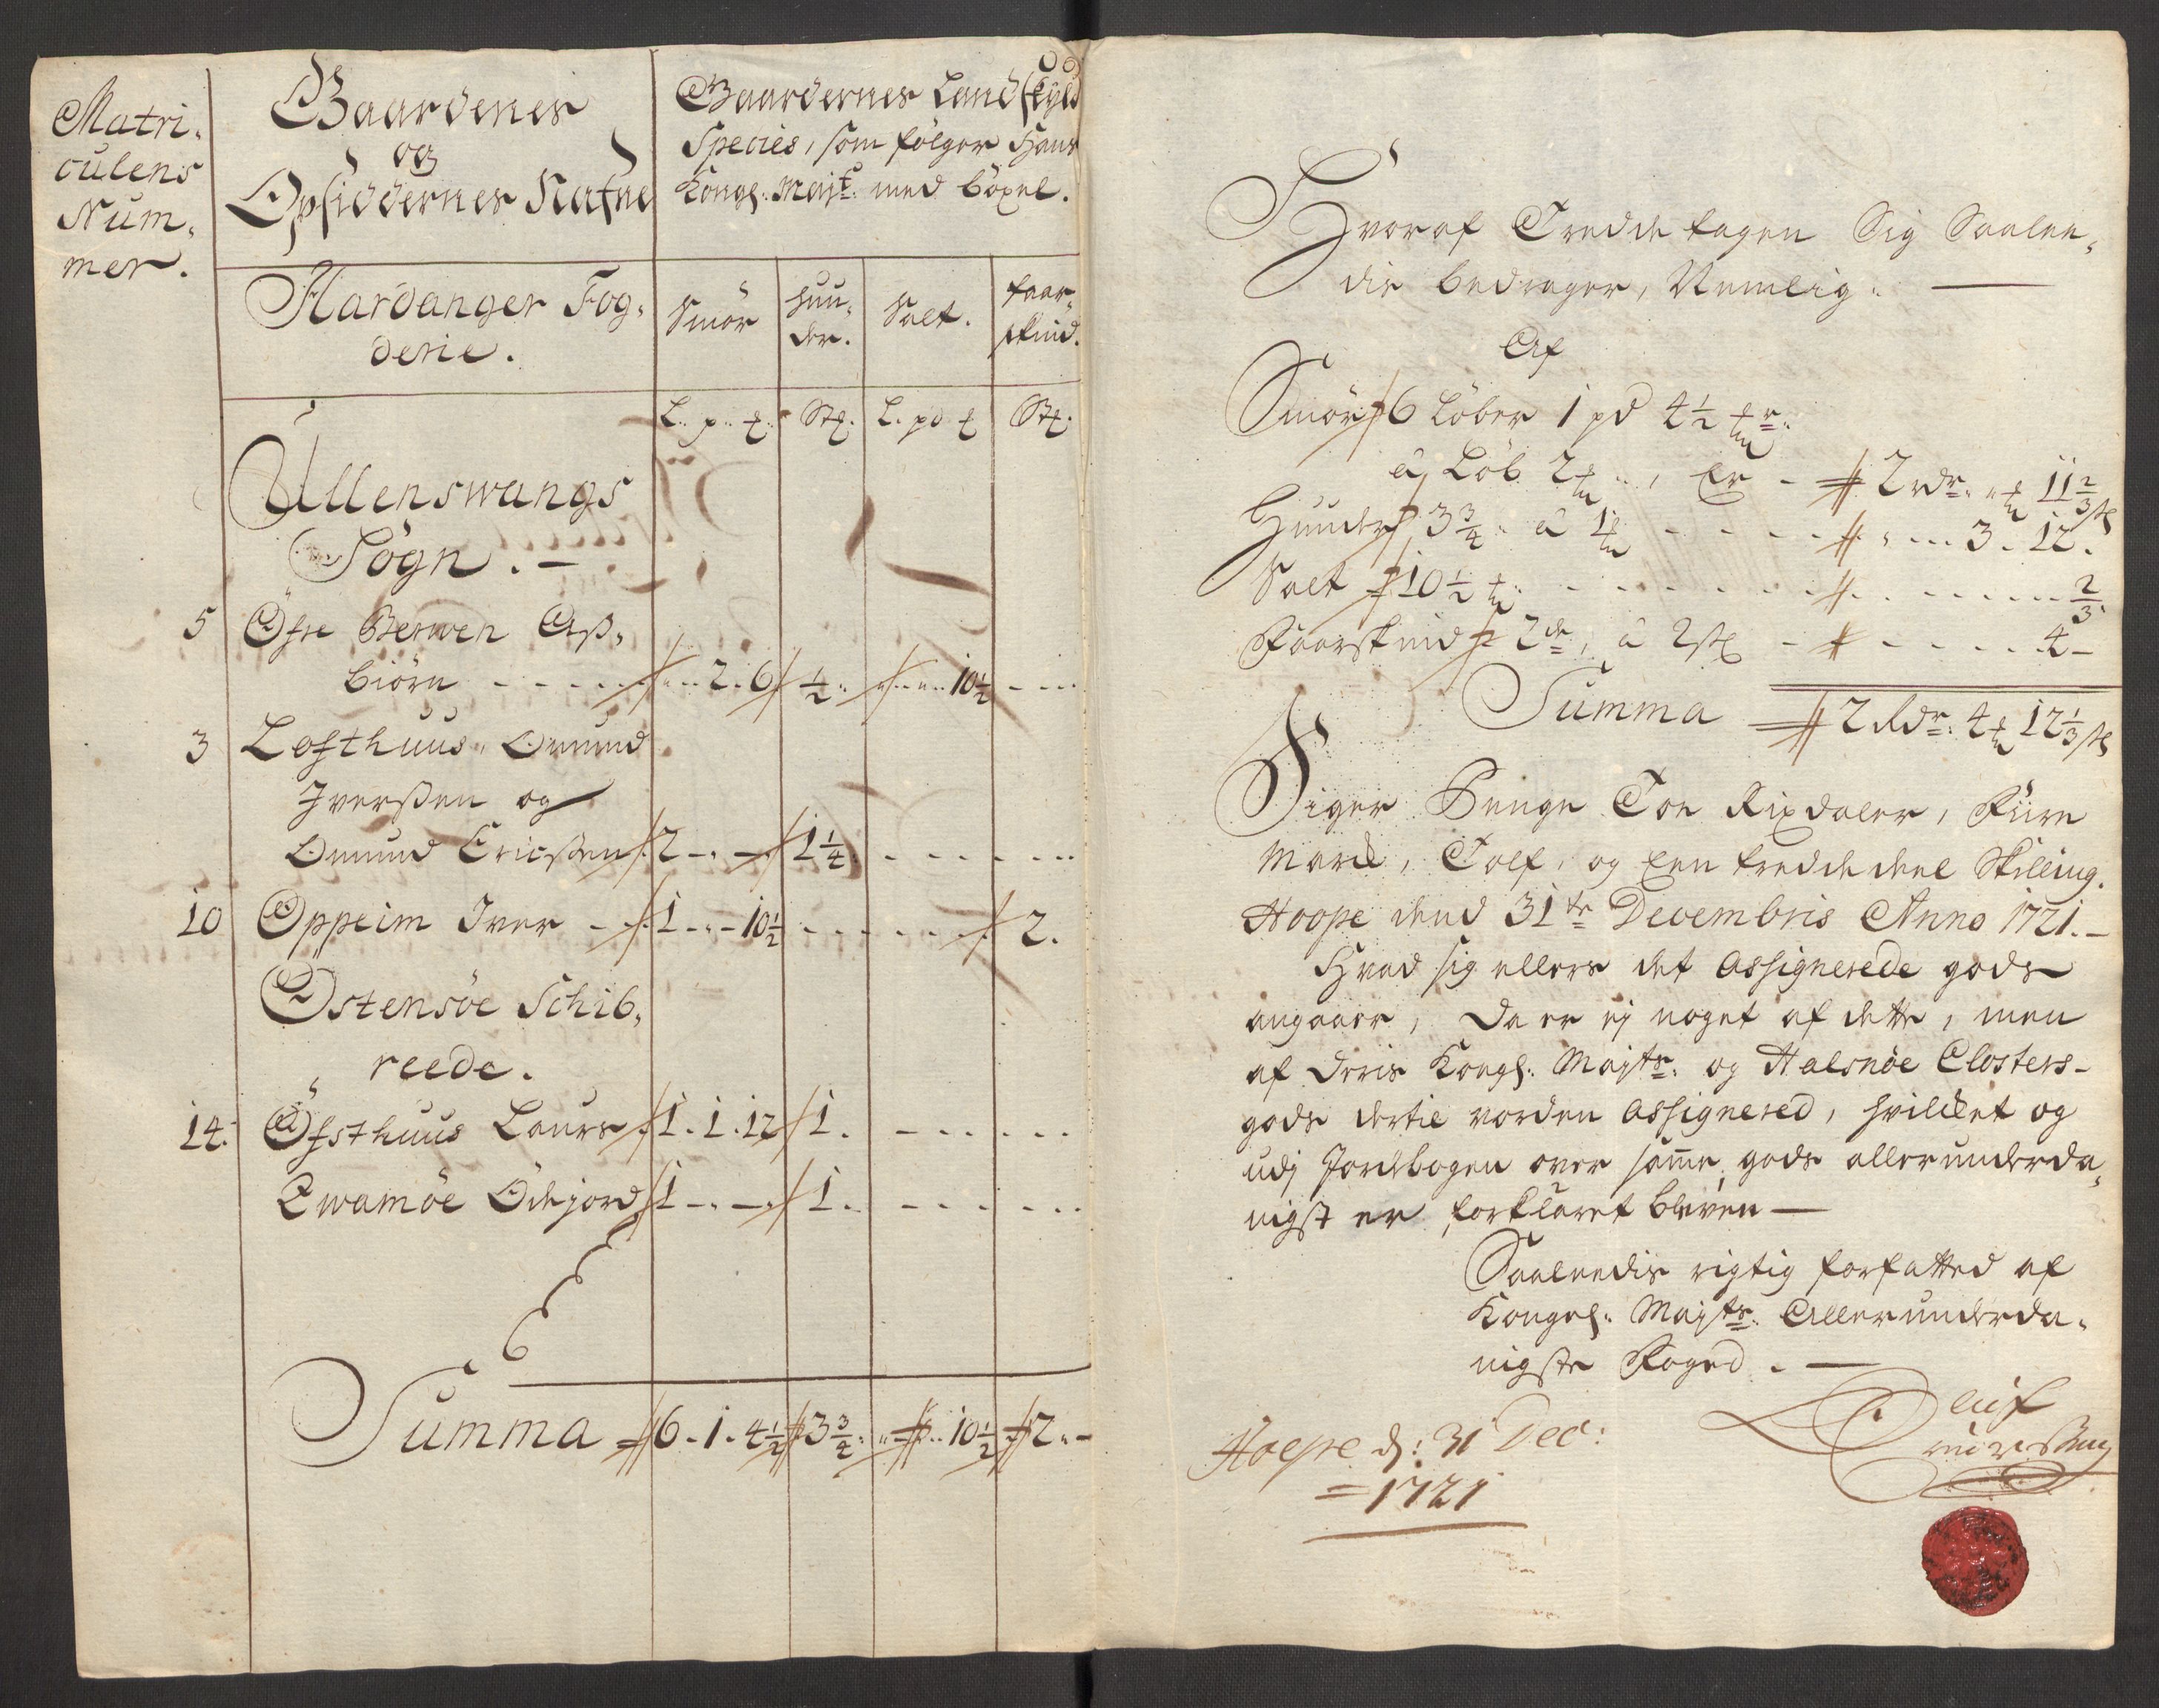 Matri-
culens
Num-
mer.
Gaardenes
og
Opsiddernes Nafne
Gaardernes Landskyld
Species, som følger Hans
Kongl: Mayt: med böxel.
Hardanger Fog-
derie.
Smör
Huu-
der.
Salt.
faar-
skind.
L. p. ℔
Stk.
L. pd ℔
Stk.
Ullenswangs
Sogn. —
5 Öfre Berven Asz-
biörn - - - - 2. 6 ½ 10½ - - -
3 Lofthuus. Omund
Iverszen og
Omund Ericszen 2 - - 1¼ - - - - - -
10 Oppeim Iver - - 1 - - 10½ - - - - - 2.
Ostensöe Schib-
reede.
14. Öfsthuus Laurs 1. 1. 12 1. - - - - - -
Qwamöe Ödejord 1 - - 1. - - - - - -
Summa 6. 1. 4½ 3¾. 10½ 2 - -
Hvoraf Tredde tagen Sig Saalee-
dis bedrager, Nemlig: —
Af
Smör 6 Löber 1 pd 4½ mr:
á Löb 2 m, Er - 2 rdr. 11⅔ sk
Huuder 3¾ á 1 m - - - - 3. 12.
Salt 10½ m - - - - - - ⅔
Faarskind 2 de, á 2 sk - - - - - 4 -
Summa 2 Rdr: 4 m 12⅓ sk
Siger Penge Toe Rixdaler, Fiire
Mark, Tolf, og Een tredde deel Skilling.
Hoope dend 31te Decembris Anno 1721. —
Hvad sig ellers det Assignerede gods
angaaer, Da er ej noget af dette, men
af Deris Kongl: Mayts: og Halsnöe Closters-
gods dertil vorden Assignered, hvilcket og
udj Jordebogen over samme gods allerunderda-
nigst er forklaret bleven —
Saaledis rigtig forfatted af
Kongel: Mayts: Allerunderda-
nigste Foged. —
Hoepe d: 31 Dec:
= 1721